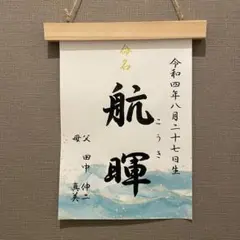 令和四年八月二十七日生
命名
航暉
こうき
父 田中 伸二
母 真美